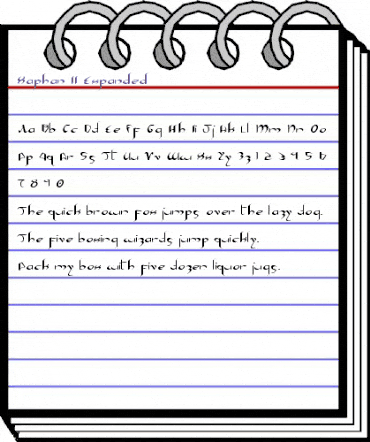 Xaphan II Expanded
Aa Bb Cc Dd Ee Ff Gg Hh Ii Jj Kk Ll Mm Nn Oo
Pp Qq Rr Ss Tt Uu Vv Ww Xx Yy Zz 1 2 3 4 5 6
7 8 9 0
The quick brown fox jumps over the lazy dog.
The five boxing wizards jump quickly.
Pack my box with five dozen liquor jugs.